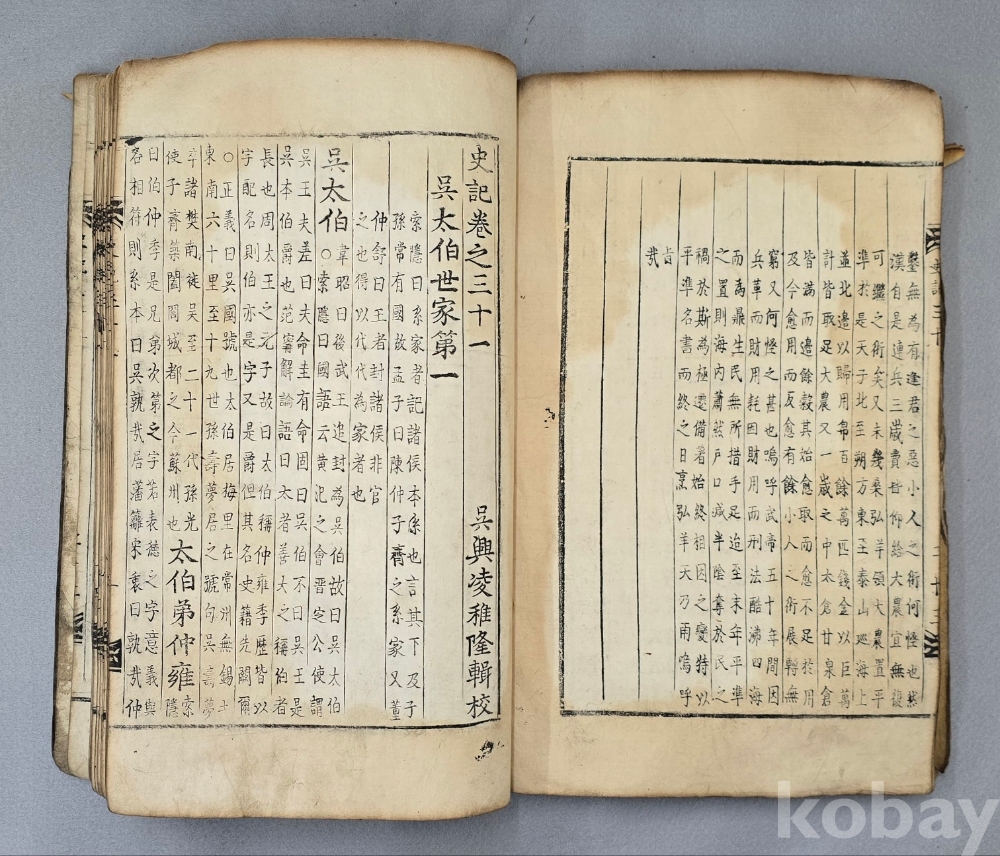 鑿無為有逢君之惡小人之術何怪也然
漢自是連兵三歲費皆仰給大農宜無復
可繼之術矣又未幾桑弘羊領大農置平
準於是天子北至朔方東至泰山廵海上
並北邊以歸用帛百餘萬匹錢金以巨萬
計皆取足大農又一歲之中太倉甘泉倉
皆滿而邊餘穀其始愈取而愈不足於用
及今愈用而反愈有餘小人之術展轉無
窮又何怪之甚也嗚呼武帝五十年間因
兵革而財用耗因財用而刑法酷沸四海
而為鼎生民無所措手足迨至末年平準
之置則海內蕭然戶口減半陰奪於民之
禍於斯為極遷備著始終相因之變特以
平準名書而終之曰烹弘羊天乃雨嗚呼
旨哉
史記卷之三十一 吳興凌稚隆輯校
吳太伯世家第一
索隱曰系家者記諸侯本系也言其下及子
孫常有國故孟子曰陳仲子齊之系家又董
仲舒曰王者封諸侯非官
之也得以代為家者也
吳太伯
○韋昭曰後武王追封為吳伯故曰吳太伯
○索隱曰國語云黃池之會晉定公使謂
吳王夫差曰夫命圭有命固曰吳伯不曰吳王是
吳本伯爵也范甯解論語曰太者善大之稱伯者
長也周太王之元子故曰太伯稱仲雍季歷皆以
字配名則伯亦是字又是爵但其名史籍先闕爾
○正義曰吳國號也太伯居梅里在常州無錫
東南六十里至十九世孫壽夢居之號句吳壽夢
卒諸樊南徙吳至二十一代孫光
使子胥築闔閭城都之今蘇州也
太伯弟仲雍
索隱
曰伯仲季是兄弟次第之字若表德之字意義與
名相符則系本曰吳孰哉居藩籬宋衷曰孰哉仲
kobay